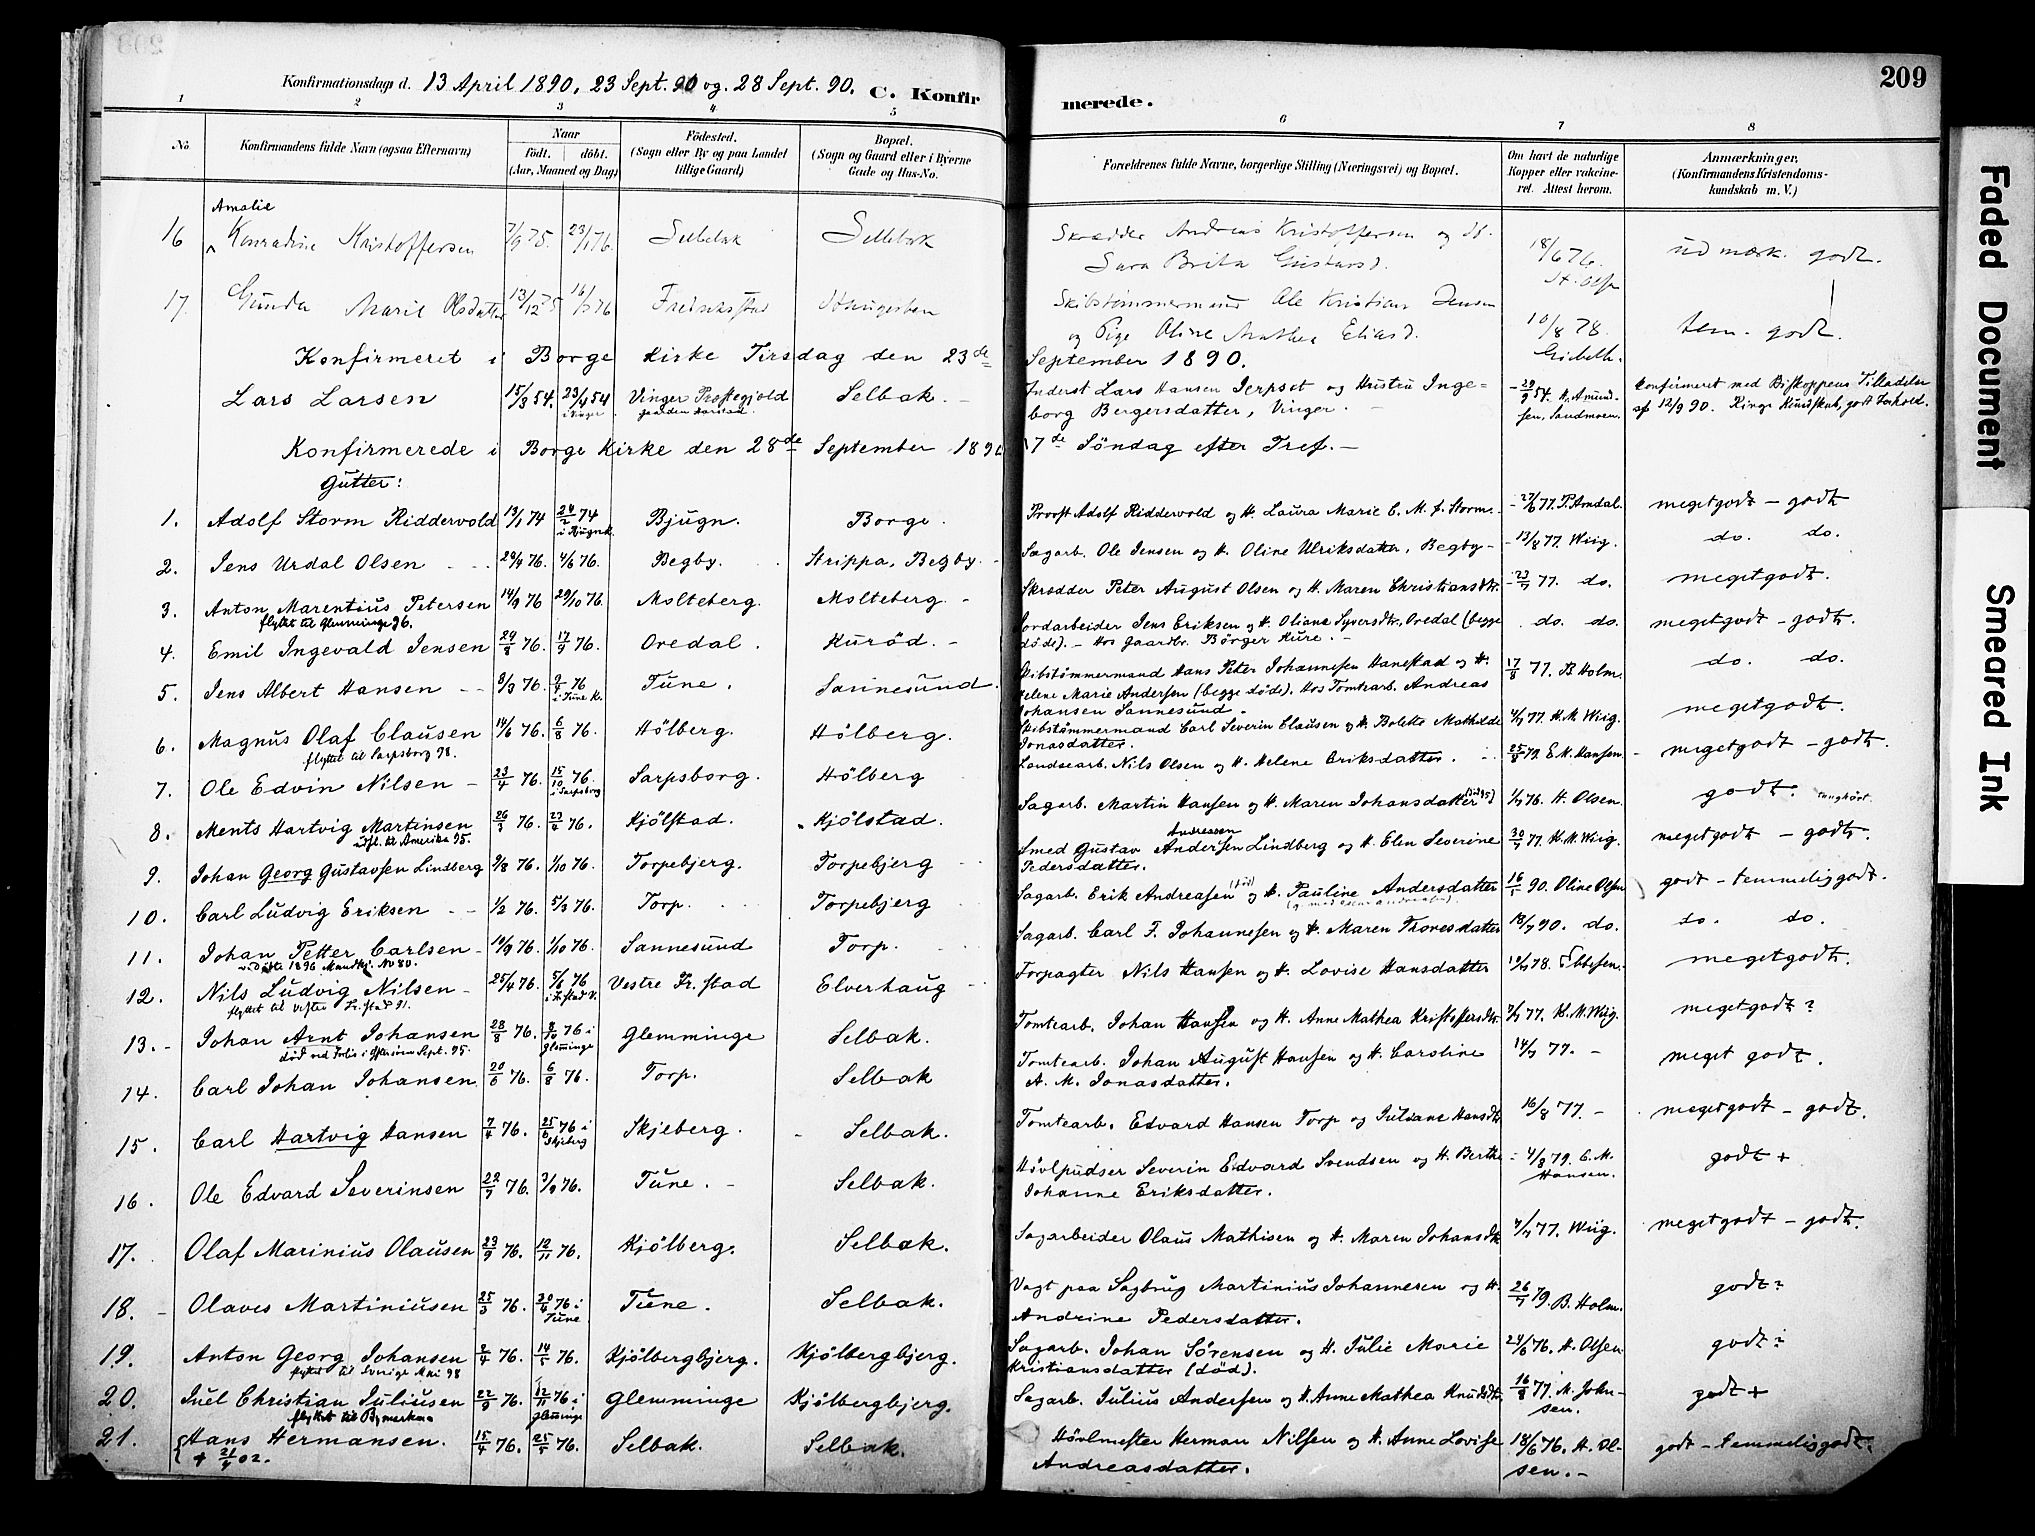 209
Konfirmationsdags d. 13 April 1890, 23 Sept. 90 og 28 Sept. 90. C. Konfirmerede.
1 2 3 4 5 6 7 8
No. Konfirmandens fulde Navn (ogsaa Efternavn) Naar födt. döbt. (Aar, Maaned og Dag) Födested. (Sogn eller By og paa Landet tillige Gaard) Bopæl. (Sogn og Gaard eller i Byerne Gade og Hus-No. Forældrenes fulde Navne, borgerlige Stilling (Næringsvei) og Bopæl. Om havt de naturlige Kopper eller vaccineret. Attest herom. Anmærkninger, (Konfirmandens Kristendomskundskab m. V.)
Amalie
16 Konradine Kristoffersen 7/9 75. 23/1 76. Sellebak Sellebak Skrædder Andreas Kristoffersen og H. Sara Brita Gustavsd. 18/6 76. H. Olsen udmærk. godt.
17. Gunda Marie Olsdatter 13/12 75 16/3 76 Fredriksstad Haugesten Skibstømmermand Ole Kristian Jensen og Pige Oline Mathea Eliasd. 10/8 78. tem. godt.
Konfirmeret i Borge Kirke Tirsdag den 23de September 1890.
Lars Larsen 15/3 54. 23/4 54 i Vinger Vinger Præstegjeld Selbak. - Inderst Lars Hansen Jerpset og Hustru Ingeborg Bergersdatter, Vinger. - 29/9 54. H. Amundsen, Sandmoen. Konfirmeret med Biskoppens Tilladelse af 12/9 90. Ringe Kundskab, godt Forhold.
Konfirmerede i Borge Kirke den 28de September 1890 17de Söndag efter Tref. -
Gutter:
1. Adolf Storm Riddervold 13/1 74 24/2 74 i Bjugn k. Bjugn. Borge. Provst Adolf Riddervold og H. Laura Marie C. M. f. Storm. - 27/6 77. P. Amdal. megetgodt - godt
2. Jens Urdal Olsen 29/4 76. 4/6 76. Begby. Strippa, Begby. Sagarb. Ole Jensen og H. Oline Ulriksdatter, Begby - 13/8 77. Wiig. do. do.
3. Anton Marentius Petersen 14/9 76 29/10 76. Molteberg. Molteberg. - Skrædder Peter August Olsen og H. Maren Christiansdtr. - 23/7 77. do. megetgodt.
flyttet til Glemminge 96.
4. Emil Ingevald Jensen 29/8 76. 17/9 76. Oredal. Kuröd. - Jordarbeider Jens Eriksen og H. Oliane Syversdtr, Oredal (begge döde). - Hos Gaardbr. Börger Kure. - do. do. megetgodt - godt.
5. Jens Albert Hansen 3/3 76. 9/4 76 i Tune K. Tune. Sannesund. Skibstömmermand Hans Peter Johannesen Hanestad og H. Helene Marie Andersen (begge döde). Hos Tomtearb. Andreas Johansen Sannesund. - 17/8 77. B. Holm. do. do.
6. Magnus Olaf Clausen 14/6 76. 6/8 76. Hölberg. Hölberg. Skibstömmermand Carl Severin Clausen og H. Bolette Mathilde Jonasdatter. 4/7 77. K. M. Wiig. megetgodt.
flyttet til Sarpsborg 98.
7. Ole Edvin Nilsen - 23/4 76. 15/10 76. i Sarpsborg Sarpsborg. Hölberg Landsearb. Nils Olsen og H. Helene Eriksdatter. 25/8 79. E. M. Hansen - megetgodt - godt.
8. Ments Hartvig Martinsen 26/3 76. 23/4 76. Kjölstad. Kjölstad. Sagarb. Martin Hansen og H. Maren Johansdatter 1/7 76. H. Olsen. godt. tunghört.
udfl. til Amerika 95.
9. Johan Georg Gustavsen Lindberg 9/8 76. 1/10 76. Torpebjerg. Torpebjerg Smed Gustav Andersen Andreassen Lindberg og H. Elen Severine Pedersdatter. 30/7 77. K. M. Wiig. meegetgodt - godt.
10. Carl Ludvig Eriksen 1/2 76. 5/3 76. Torp. Torpebjerg Sagarb. Erik Andreasen (död) og H. Pauline Andersdatter 16/1 90. Oline Olsen godt - temmelig godt.
11. Johan Petter Carlsen - 19/9 76. 1/10 76. Sannesund Torp. Sagarb. Carl F. Johannesen og H. Maren Thoresdatter 18/7 90. do. do. do.
vid. 1896 Mandkj. No 80.
12. Nils Ludvig Nilsen - 25/4 76. 5/6 76 i Fr.stad V. Vestre Fr.stad Elverhaug Forpagter Nils Hansen og H. Lovise Hansdatter 19/7 78. Ebbesen. megetgodt.
flyttet til Vestre Fr.stad 91.
13. - Johan Arnt Johansen 28/8 76. 8/10 76 i Glemminge Glemminge Selbak. Tomtearb. Johan Hansen og H. Anne Mathea Kristoffersdtr. 7/7 77. K. M. Wiig. megetgodt?
14. Carl Johan Johansen 20/6 76. 6/8 76. Torp. Selbak Tomtearb. Johan August Hansen og H. Caroline A. M. Jonasdatter. 14/7 77. - meget godt.
15. Carl Hartvig Hansen 7/4 76. 25/6 76 i Skjeberg Skjeberg. - Selbak. Tomtearb. Edvard Hansen Torp og Juliane Hansdtr 16/8 77. - megetgodt - godt.
16. Ole Edvard Severinsen 22/7 76. 3/9 76. Tune. - Selbak. Hövlpudser Severin Edvard Svendsen og H. Berthe Johanne Eriksdatter. 4/8 79. C. M. Hansen. godt +
17. Olaf Marinius Olausen 23/9 76. 12/11 76. Kjölberg. Selbak. Sagarbeider Olaus Mathisen og H. Maren Johansdtr 4/7 77. Wiig. megetgodt - godt.
18. - Olaves Martiniusen 25/3 76. 30/4 76 i Tune Tune. Selbak. Vagt paa Sagbrug Martinius Johannesen og H. Andrine Pedersdatter. 26/7 79. B. Holm. godt?
19. Anton Georg Johansen 2/4 76. 14/5 76. Kjölbergbjerg. Kjölbergbjerg. Sagarb. Johan Sörensen og H. Julie Marie Kristiansdatter (död). 24/6 76. H. Olsen godt?
flyttet til Sverige Mai 98
20. Juel Christian Juliusen 22/9 76. 12/11 76 i Glemminge Glemminge Kjölbergbjerg. Sagarb. Julius Andersen og H. Anne Mathea Knudsdtr 16/8 77. M. Johnsen. godt +
flyttet til Bymarken
21. Hans Hermansen. 15/4 76. 25/5 76. Selbak. Selbak. Hövlmester Herman Nilsen og H. Anne Lovise Andreasdatter. 18/6 76. H. Olsen. - godt - temmelig godt.
+ 21/4 02.
Faded Document
Smeared Ink